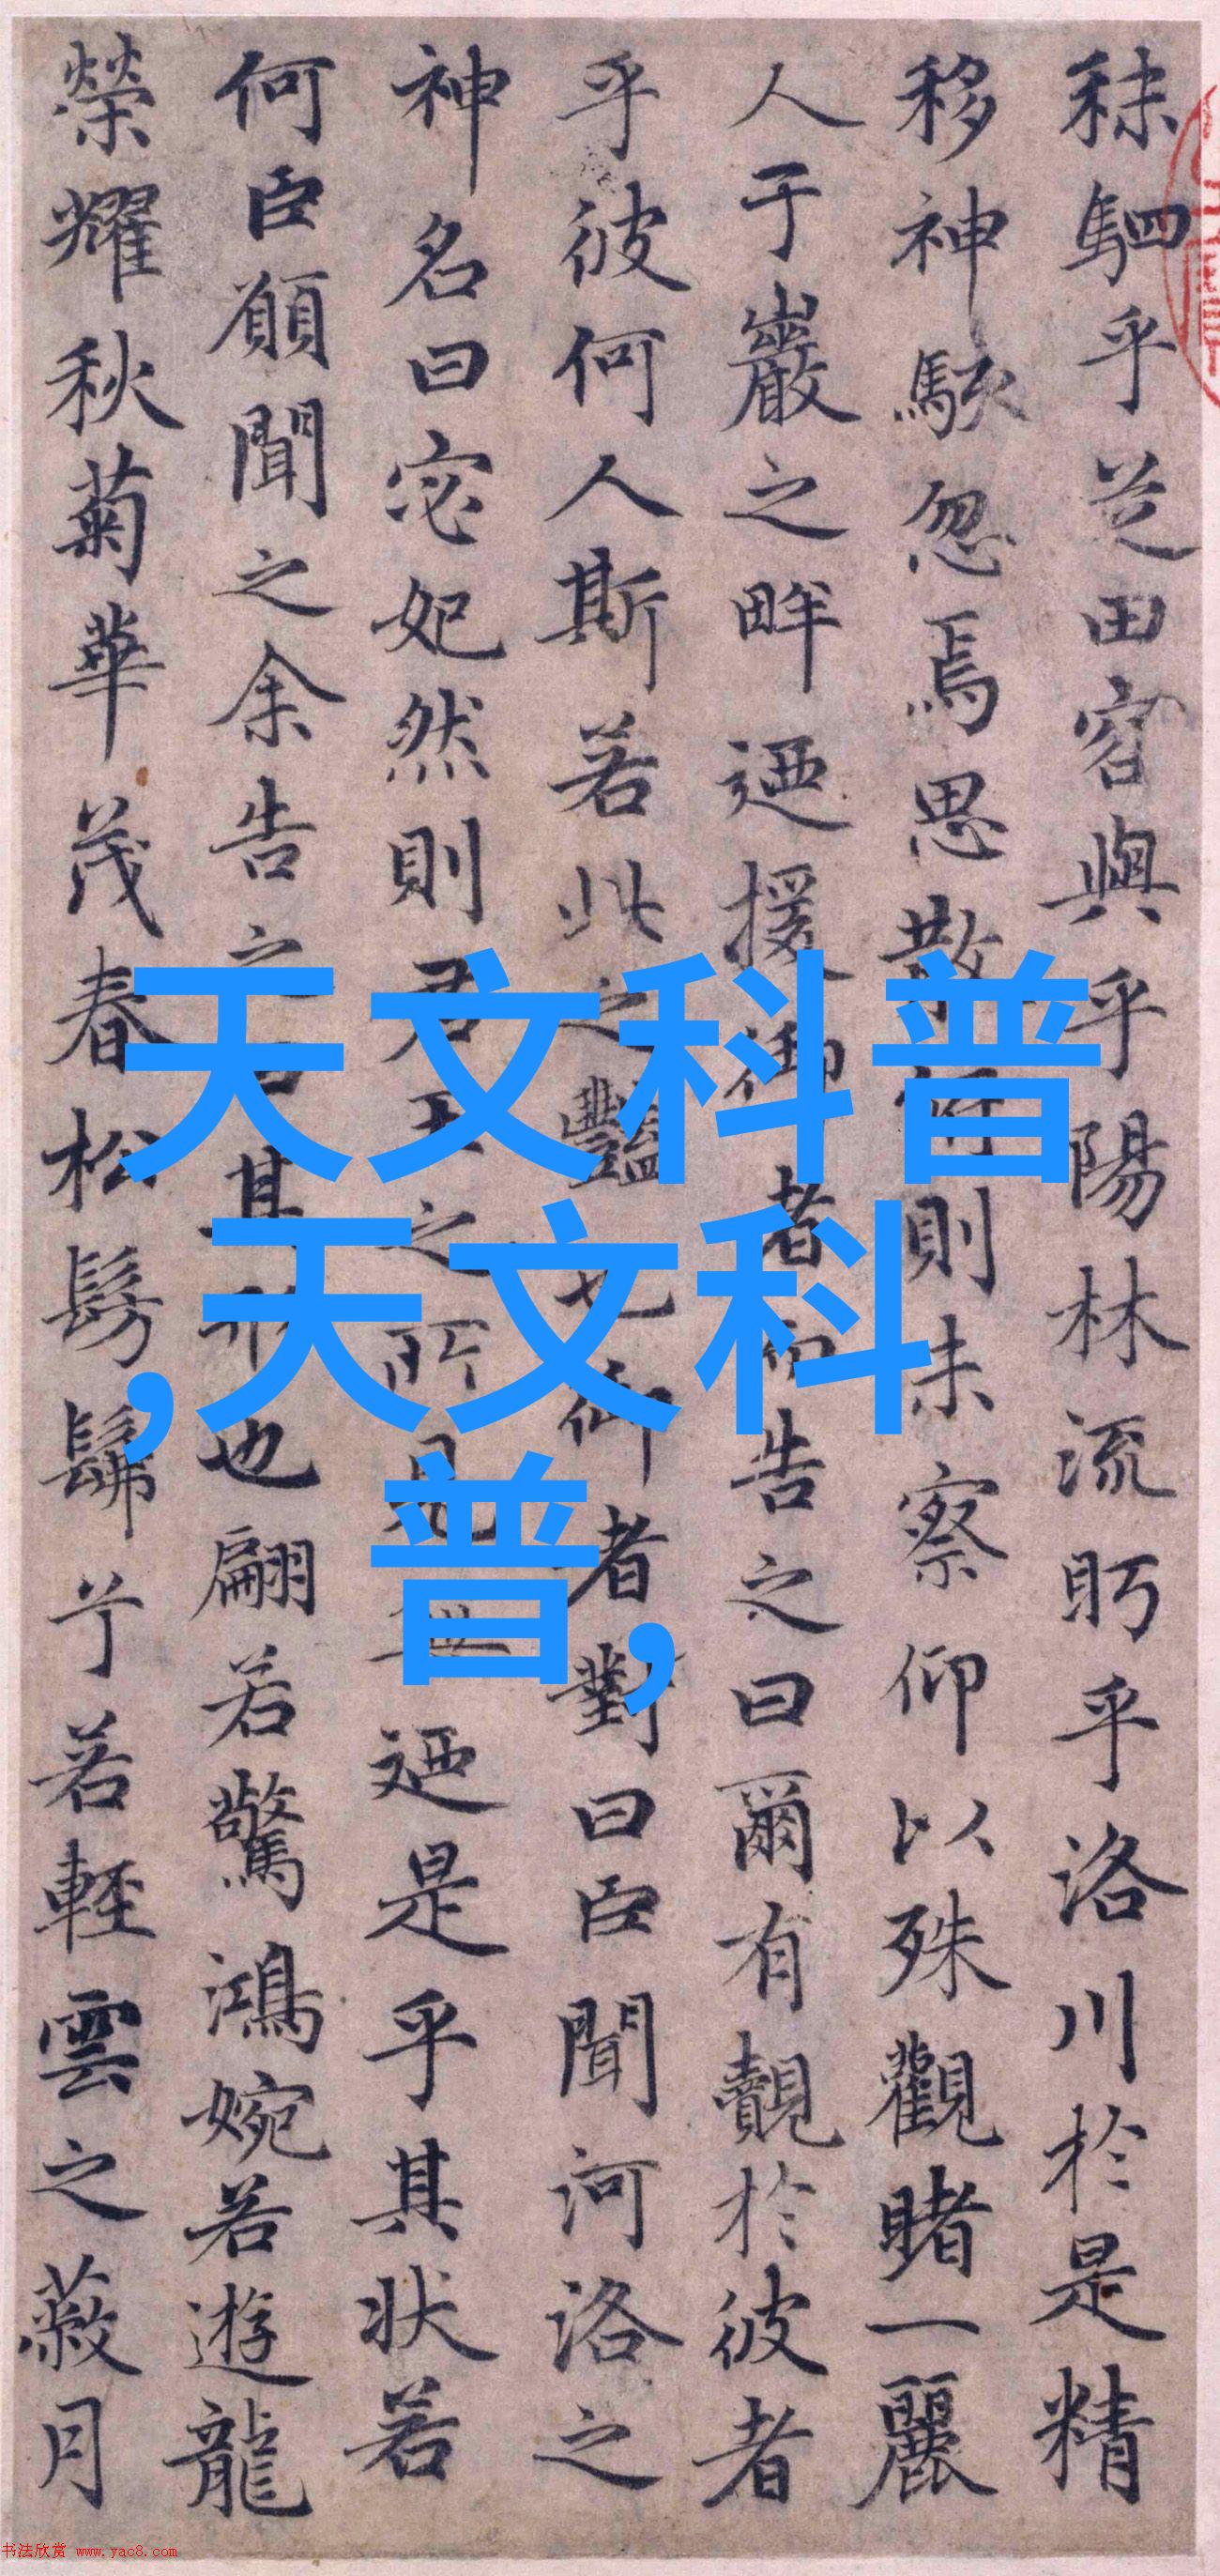 秣駟乎芝田容與乎陽林流眄乎洛川於是精
移神駭忽焉思散俯則未察仰以殊觀睹一麗
人于巖之畔迺援御者而告之曰爾有覿於彼者
乎彼何人斯若此之豔也御者對曰臣聞河洛之
神名曰宓妃然則君王之所見無迺是乎其狀若
何臣願聞之余告之曰其形也翩若驚鴻婉若遊龍
榮耀秋菊華茂春松髣髴兮若輕雲之蔽月
天文科普
,天文科
普,
书法欣赏 www.yac8.com